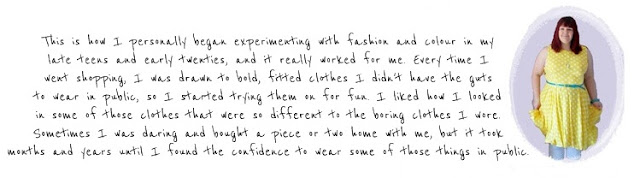 This is how I personally began experimenting with fashion and colour in my
late teens and early twenties, and it really worked for me. Every time I
went shopping, I was drawn to bold, fitted clothes I didn't have the guts
to wear in public, so I started trying them on for fun. I liked how I looked
in some of those clothes that were so different to the boring clothes I wore.
Sometimes I was daring and bought a piece or two home with me, but it took
months and years until I found the confidence to wear some of those things in public.